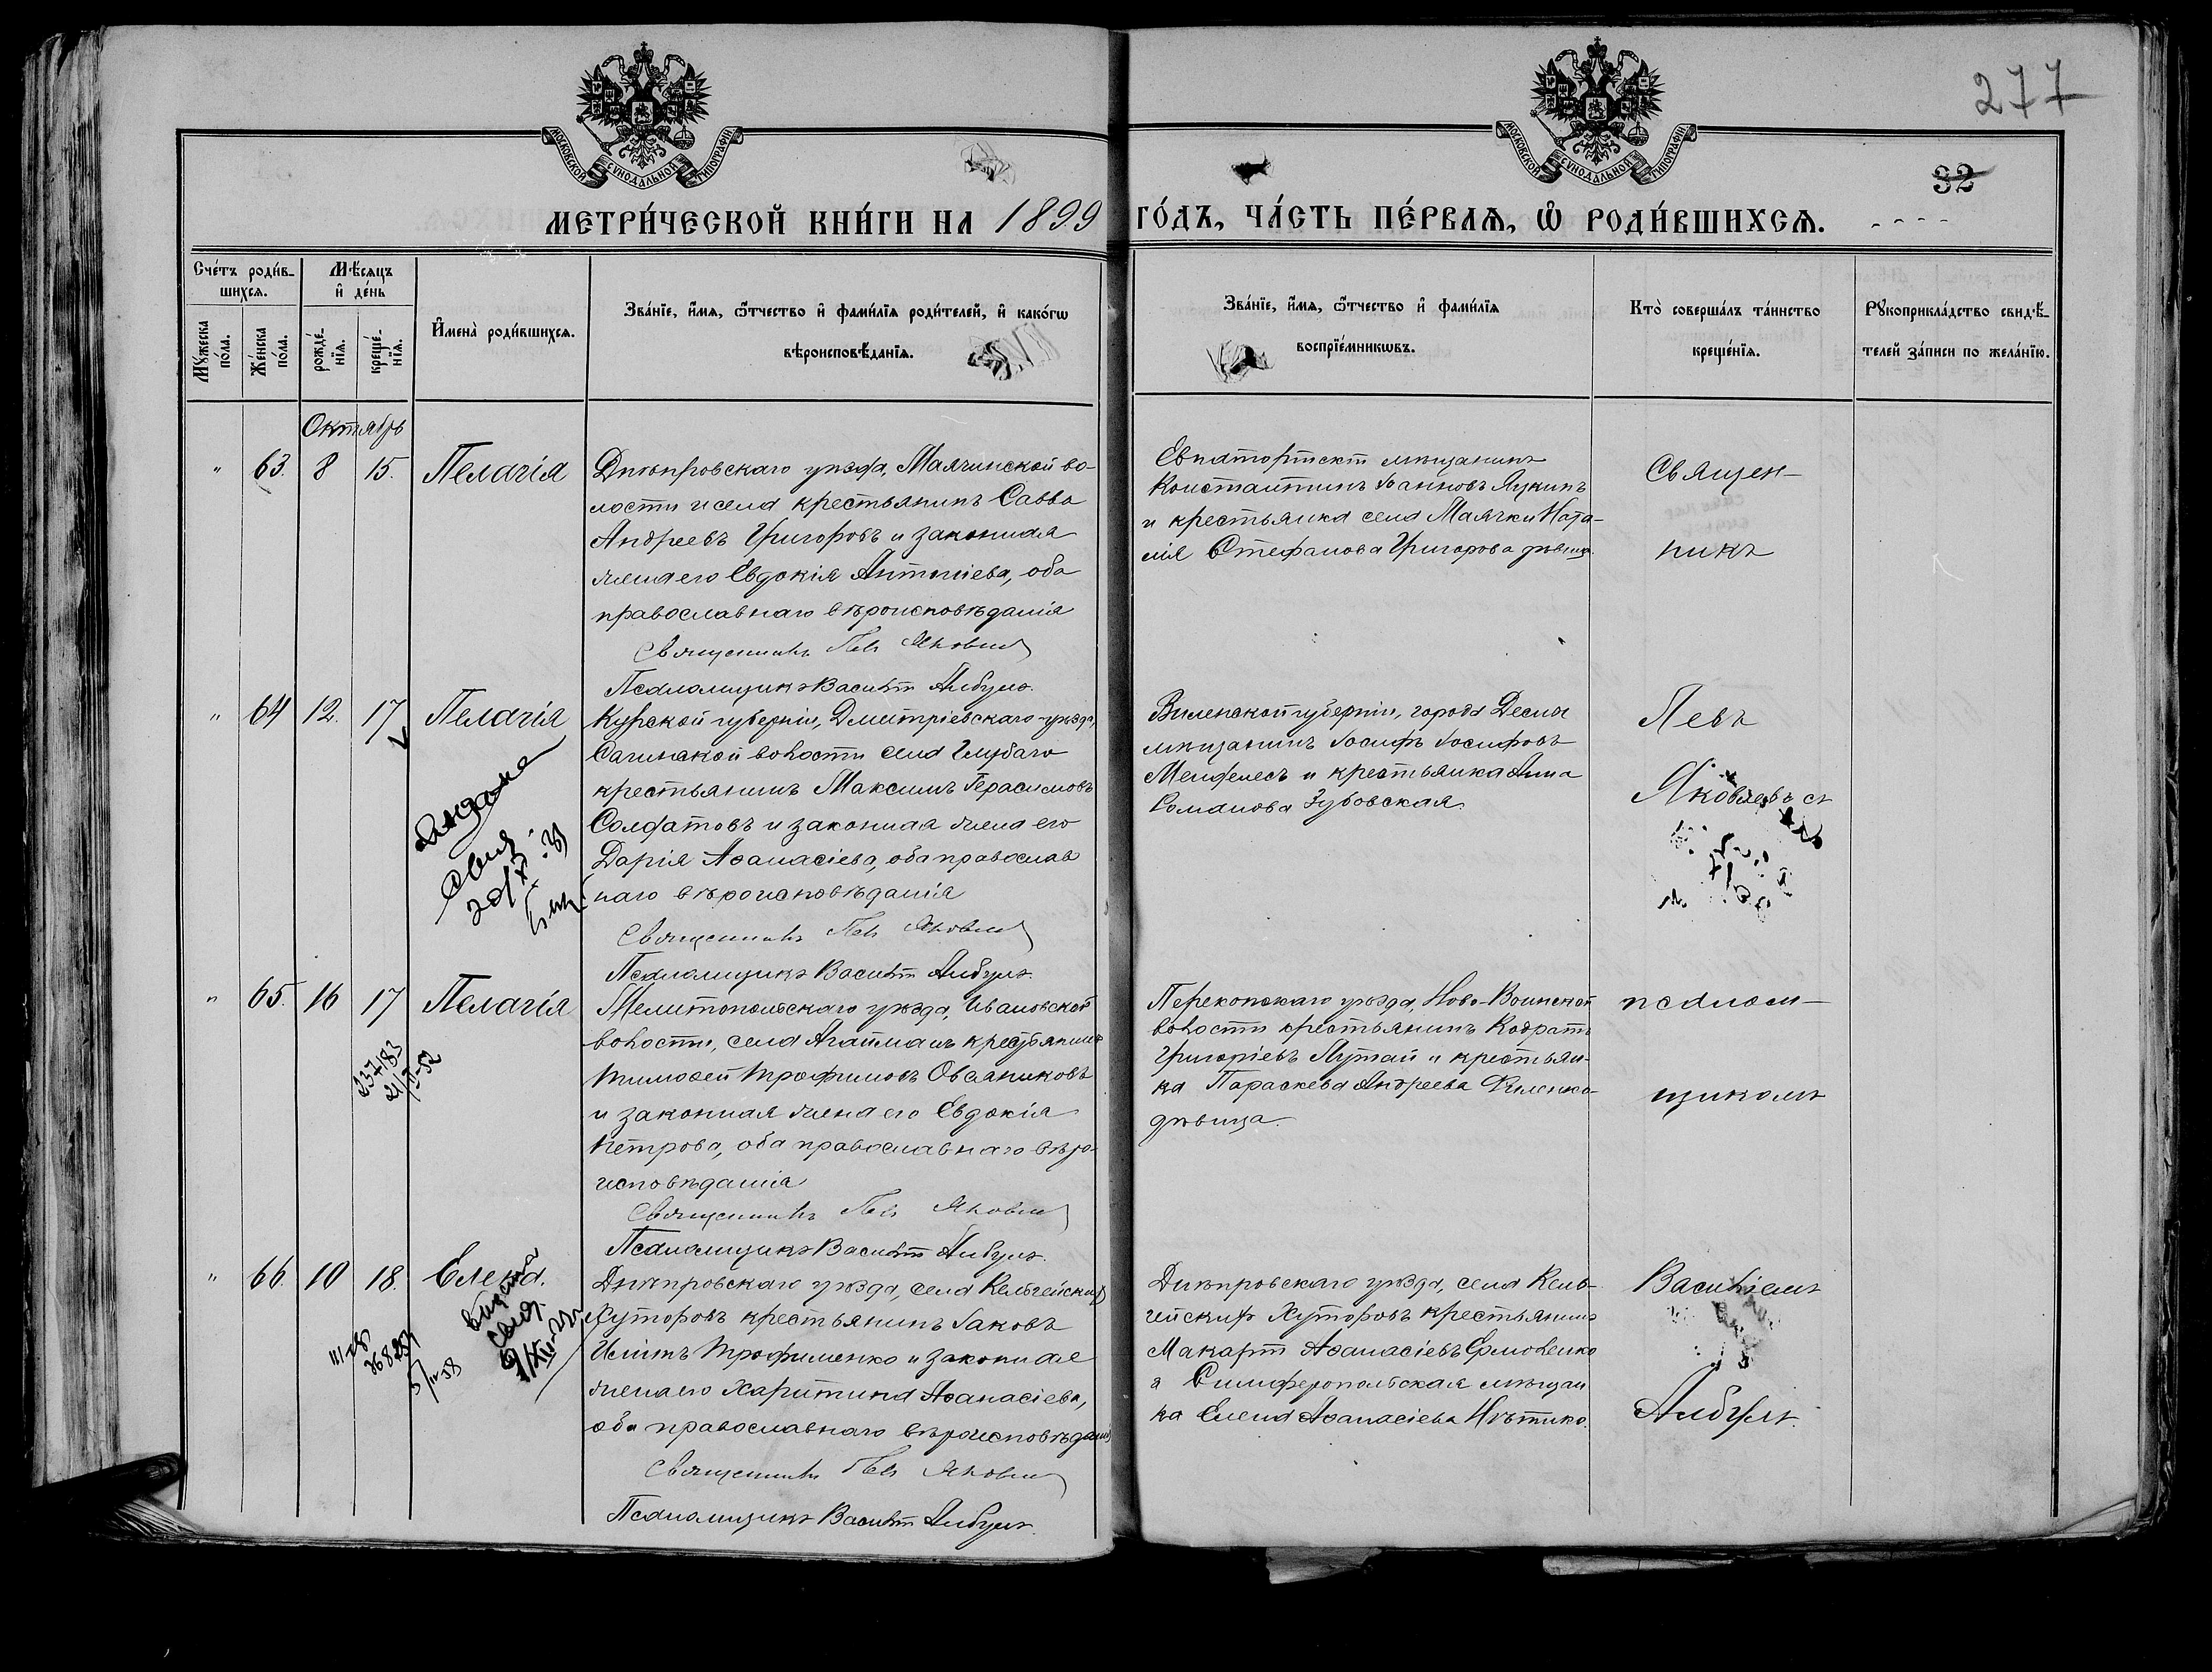 277
МОСКОВСКОЙ СѴНОДАЛЬНОЙ ТИПОГРАФІИ
МОСКОВСКОЙ СѴНОДАЛЬНОЙ ТИПОГРАФІИ
32
МЕТРИ́ЧЕСКОЙ КНИ́ГИ НА 1899 ГО́ДЪ, ЧА́СТЬ ПЕ́РВАѦ, Ѡ҆ РОДИ́ВШИХСѦ.
Сче́тъ роди́в-
шихсѧ.
Мꙋ́жеска
по́ла.
Же́нска
по́ла.
Мѣ́сѧцъ
и҆ де́нь
рожде́-
нїѧ.
креще́-
нїѧ.
И҆мена̀ роди́вшихсѧ.
Зва́нїе, и҆́мѧ, ѻ҆́тчество и҆ фами́лїѧ роди́телей, и҆ како́гѡ
вѣроисповѣ́данїѧ.
Зва́нїе, и҆́мѧ, ѻ҆́тчество и҆ фами́лїѧ
воспрїе́мникѡвъ.
Кто̀ соверша́лъ та́инство
креще́нїѧ.
Рꙋкоприкла́дство свидѣ́-
телей за́писи по жела́нїю.
Октябрь
" 63. 8 15. Пелагія
Днѣпровскаго уѣзда, Маячинской во-
лости и села крестьянинъ Савва
Андреевъ Григоровъ и законная
жена его Евдокія Антоніева, оба
православнаго вѣроисповѣданія
Священникъ Левъ Яковлев
Псаломщикъ Василій Албулъ.
Евпаторійскій мѣщанинъ
Константинъ Іоанновъ Лукинъ
и крестьянка села Маячки Ната-
лія Стефанова Григорова дѣвица.
Священ-
никъ
" 64 12. 17 Пелагія
Курской губерніи, Дмитріевскаго уѣзда,
волости села
крестьянинъ Максимъ Герасимовъ
Солдатовъ и законная жена его
Дарія Аѳанасіева, оба православ
наго вѣроисповѣданія
Священникъ Левъ Яковлев
Псаломщикъ Василій Албулъ.
Виленской губерніи, города
мѣщанинъ Іосифъ Іосифовъ
и крестьянка Анна
Романова Зубовская.
Левъ
Яковлевъ съ
" 65. 16 17 Пелагія
237183
Мелитопольскаго уѣзда, Ивановской
волости, села Агайманъ крестьянинъ
Тимоѳей Трофимовъ Овсяниковъ
и законная жена его Евдокія
Петрова, оба православнаго вѣро-
исповѣданія
Священникъ Левъ Яковлев
Псаломщикъ Василій Албулъ.
Перекопскаго уѣзда, Ново-
волости крестьянинъ Кодратъ
Григоріевъ и крестьян-
ка Параскева Андреева
дѣвица.
псалом-
щикомъ
" 66. 10 18. Елена.
Днѣпровскаго уѣзда, села Кельгейскихъ
Хуторовъ крестьянинъ Іаковъ
Трофименко и законная
жена его Харитина Аѳанасіева,
оба православнаго вѣроисповѣданія
Священникъ Левъ Яковлев
Псаломщикъ Василій Албулъ.
Днѣпровскаго уѣзда, села Кель-
гейскихъ Хуторовъ крестьянинъ
Макарій Аѳанасіевъ Ермоленко
и Симферопольская мѣщан
ка Елена Аѳанасіева
Василіемъ
Албулъ.